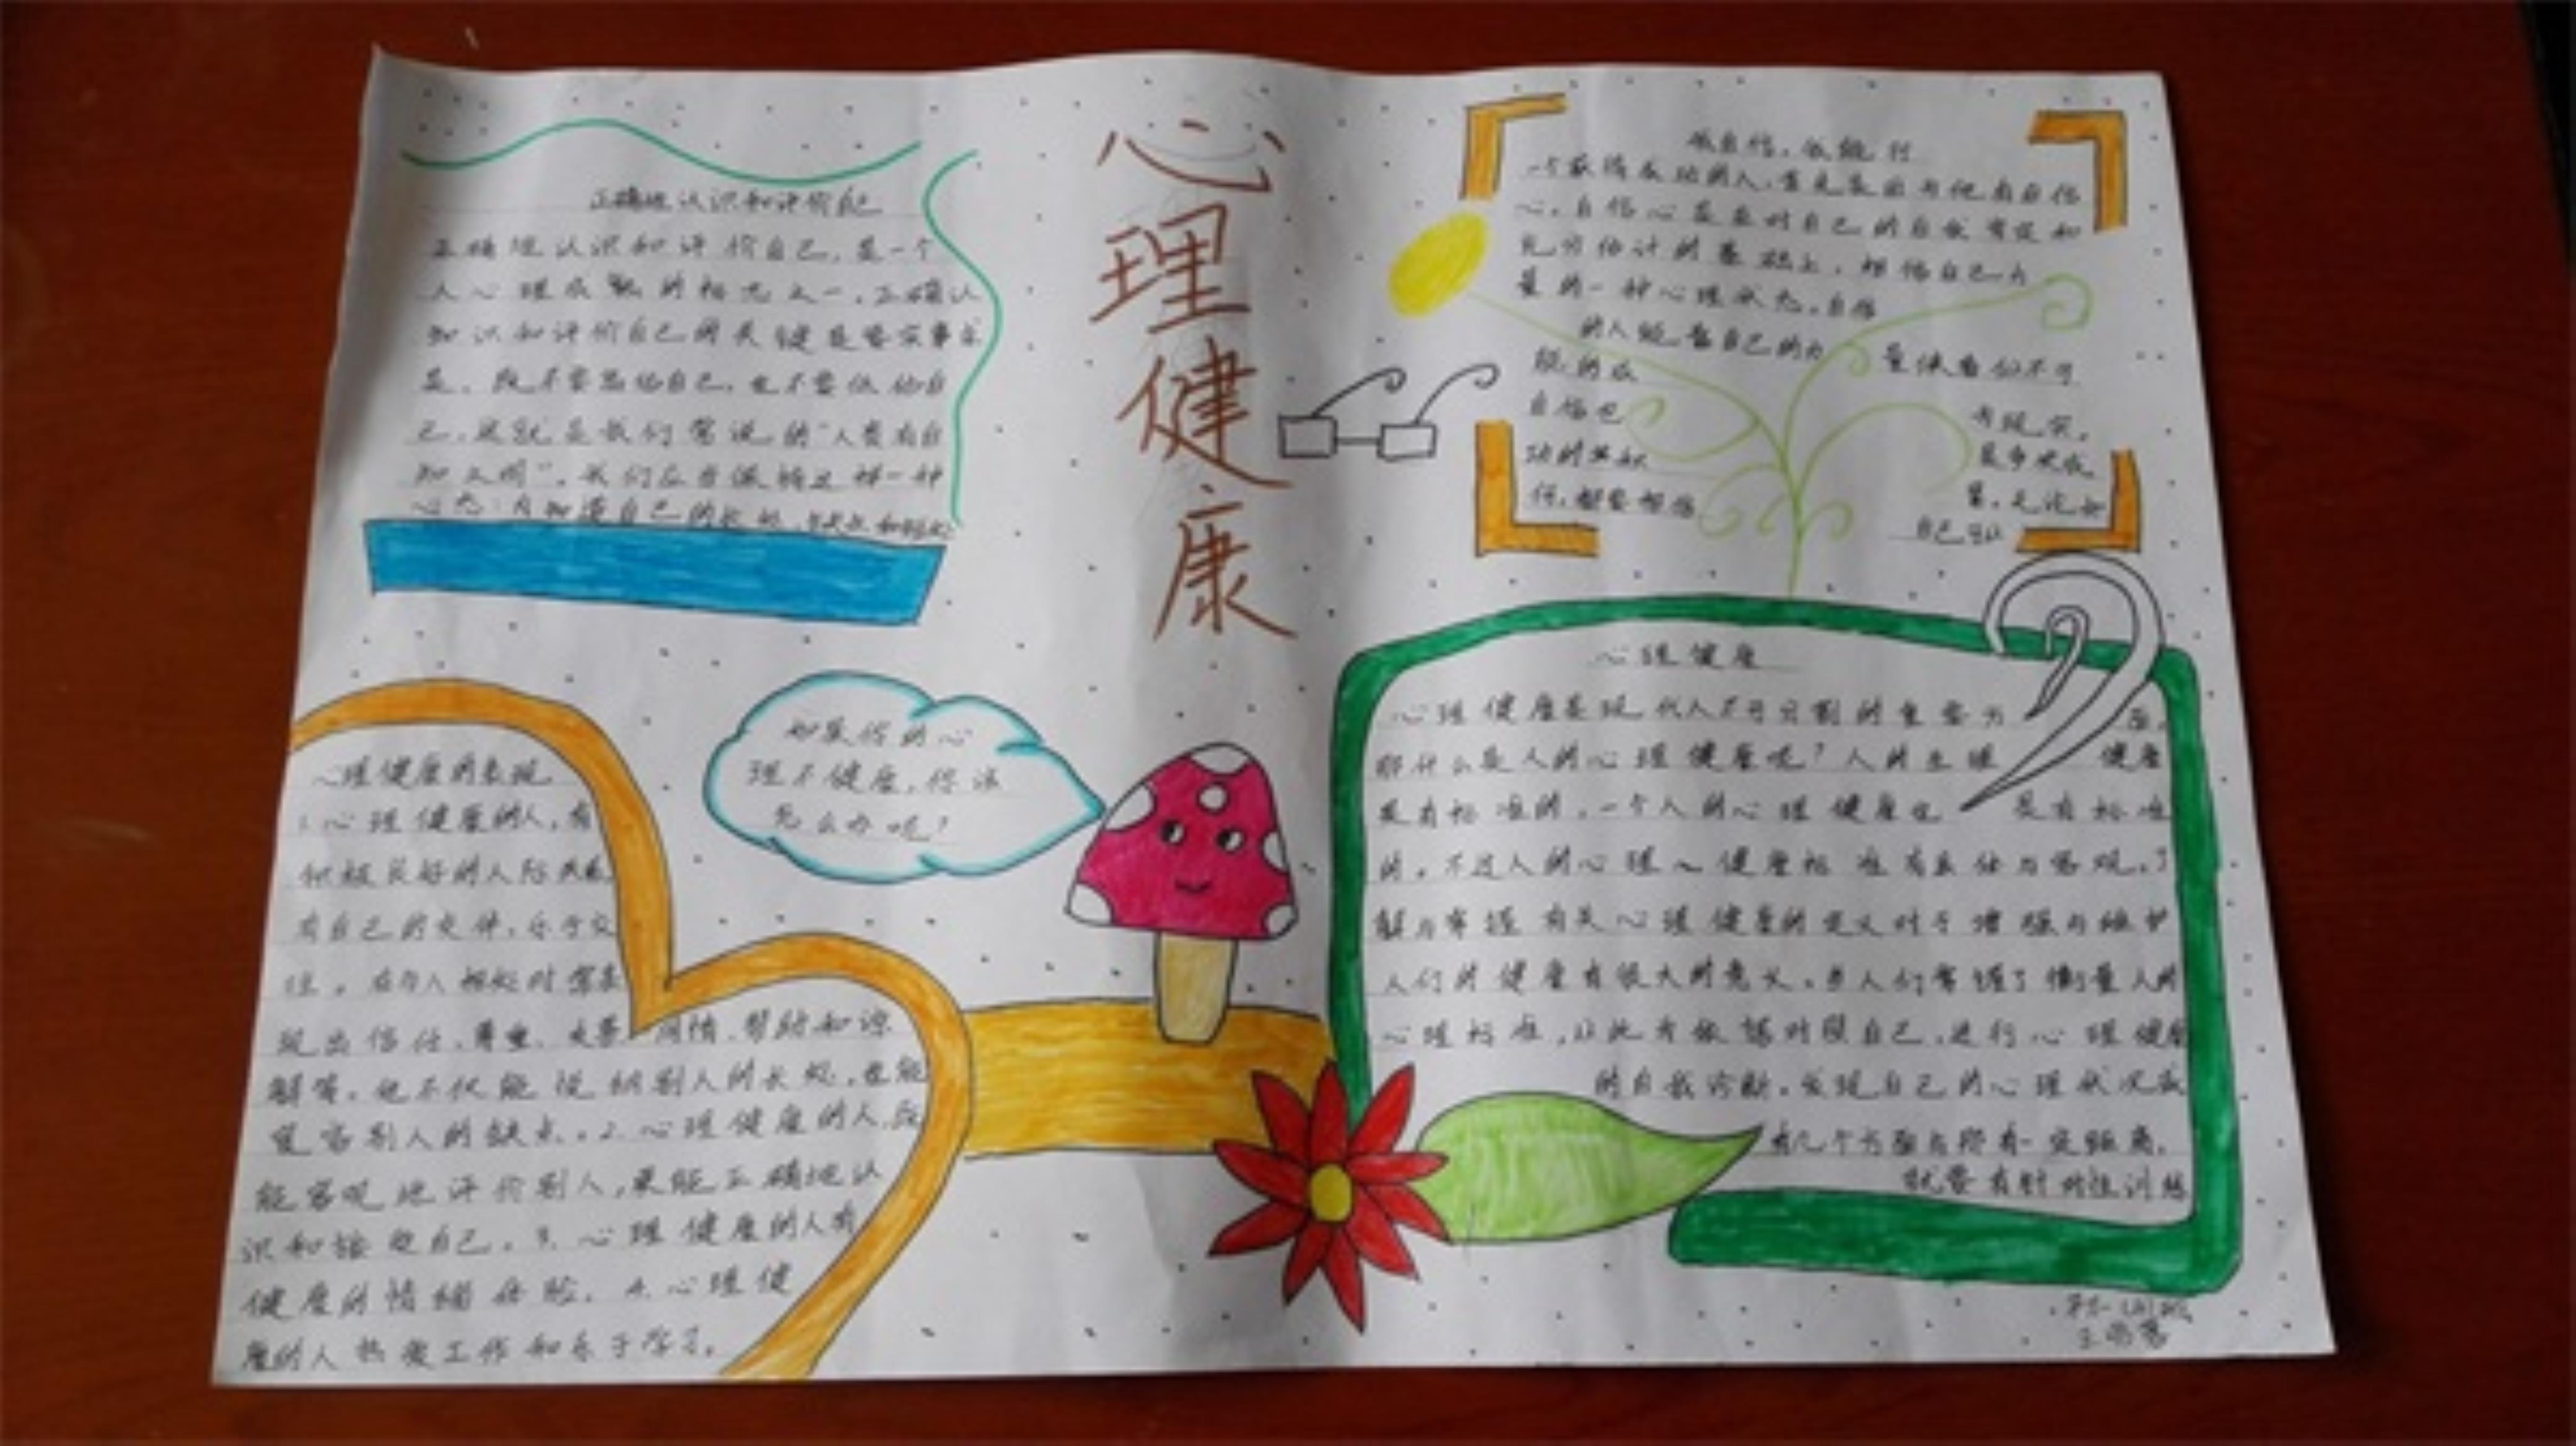 心理健康
正确地认识和评价自己
正确地认识和评价自己,是一个
人心理成熟的标志之一,正确认
知识和评价自己的关键是要实事求
是,既不要高估自己,也不要低估自
己,这就是我们常说的“人贵有自
知之明”。我们应当保持这样一种
心态:自知道自己的长处,
我自信,我能行
一个获得成功的人,首先是因为他有自信
心,自信心是在对自己的自我肯定和
充分估计的基础上,相信自己力
量的一种心理状态,自信
的人能靠自己的力 量使看似不可
能的成 为现实。
自信也 是争取成
功的 量,无论如
何,都要相信 自己
如果你的心
理不健康,你该
怎么办呢?
心理健康的表现
1.心理健康的人,有
积极良好的人际关系
有自己的交伴,乐于交
往。在与人相处时常表
现出信任、尊重、关爱、同情、帮助和谅
解等。他不仅能说明别人的长处,也能
宽容别人的缺点。2.心理健康的人,应
能客观地评价别人,更能正确地认
识和接受自己。3.心理健康的人有
健康的情绪体验。4.心理健
康的人热爱工作和乐于学习。
心理健康
心理健康是现代人不可分割的重要方 面,
那什么是人的心理健康呢?人的生理 健康
是有标准的,一个人的心理健康也 是有标准
的。不过人的心理健康标准有具体与客观,了
解与掌握有关心理健康的定义对于增强与维护
人们的健康有很大的意义。当人们掌握了衡量人的
心理标准,以此为依据对照自己,进行心理健康
的自我诊断。发现自己的心理状况或
有几个方面与所有一定距离,
就要有针对性训练